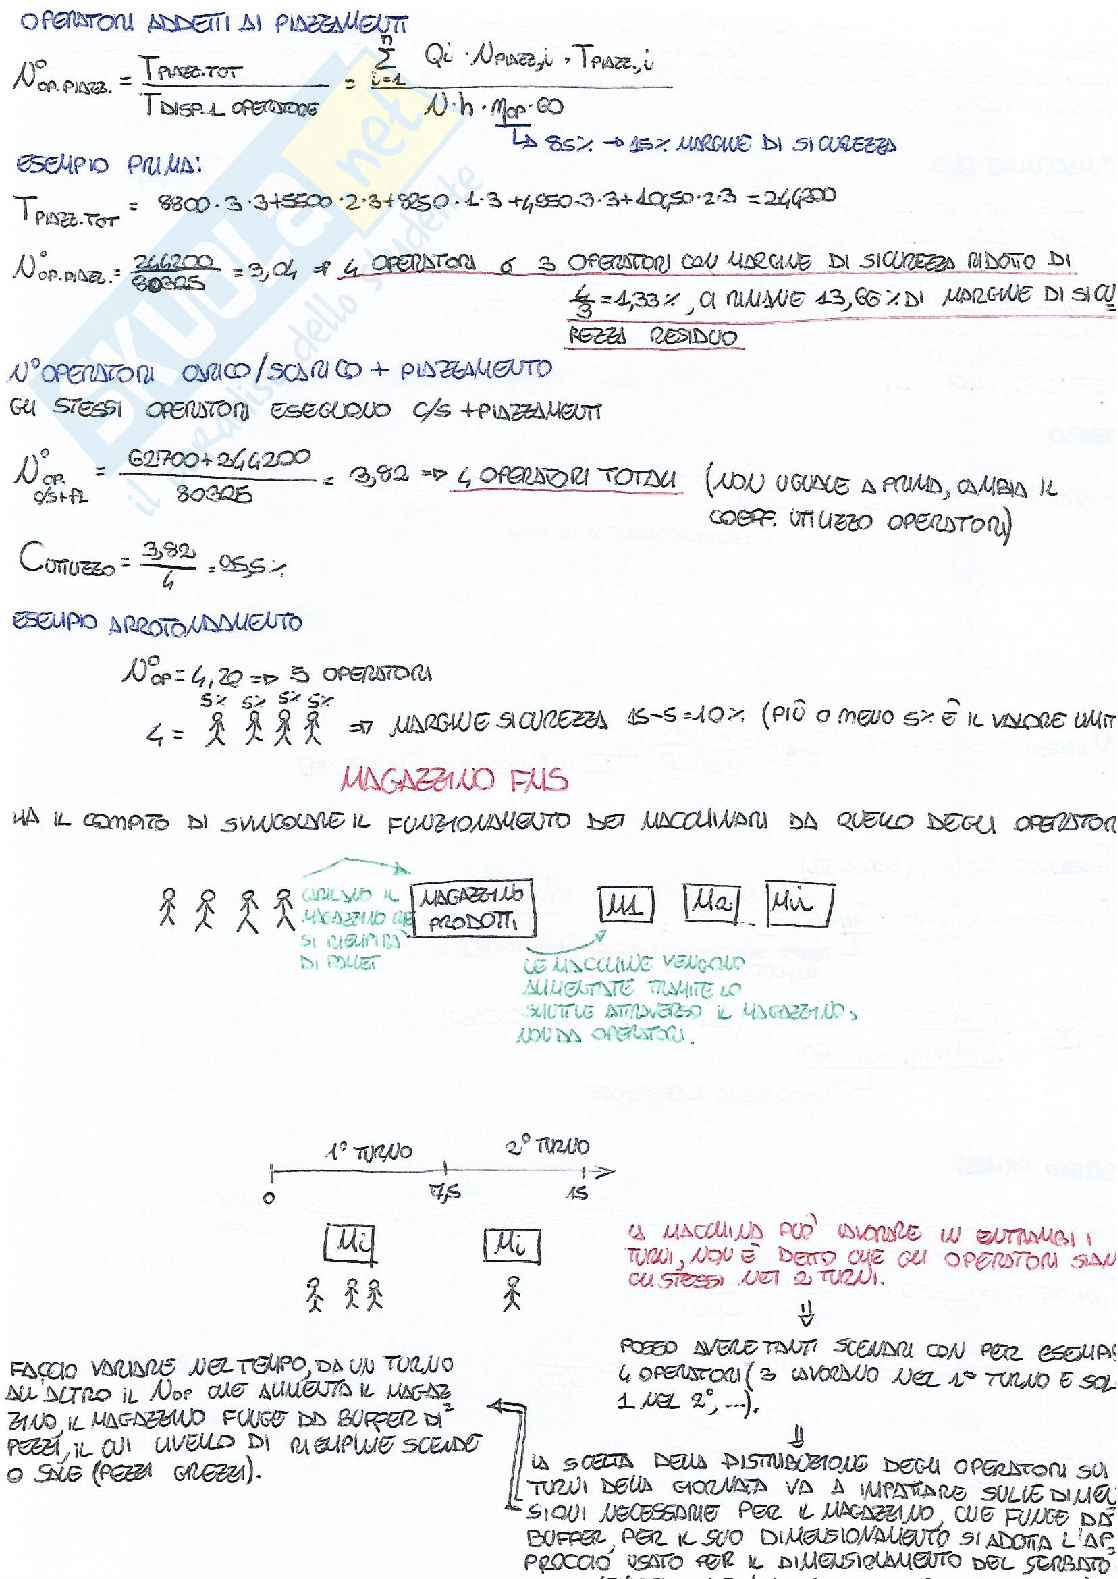 OPERATORI ADDETTI AI PIAZZAMENTI
N°OP.PIAZZ. = TPIAZZ.TOT / TDISP.1 OPERATORE = n Σ i=1 Qi · NPIAZZ,i · TPIAZZ.,i / N·h·ηOP·60
↳ 85% → 15% MARGINE DI SICUREZZA
ESEMPIO PRIMA:
TPIAZZ.TOT = 8800·3·3+5500·2·3+8250·1·3+4950·3·3+10450·2·3 = 244200
N°OP.PIAZZ. = 244200 / 80325 = 3,04 ⇒ 4 OPERATORI o 3 OPERATORI CON MARGINE DI SICUREZZA RIDOTO DI
4/3 = 1,33%, CI RIMANE 13,66% DI MARGINE DI SICU
REZZA RESIDUO
N° OPERATORI CARICO/SCARICO + PIAZZAMENTO
GLI STESSI OPERATORI ESEGUONO C/S + PIAZZAMENTI
N°OP. C/S+PI. = 62700+244200 / 80325 = 3,82 ⇒ 4 OPERATORI TOTALI (NON UGUALE A PRIMA, CAMBIA IL
COEFF. UTILIZZO OPERATORI)
CUTILIZZO = 3,82 / 4 = 95,5%
ESEMPIO ARROTONDAMENTO
N°OP = 4,20 ⇒ 5 OPERATORI
5% 5% 5% 5%
4 = ⇒ MARGINE SICUREZZA 15-5=10% (PIÙ O MENO 5% È IL VALORE LIMIT
MAGAZZINO FMS
HA IL COMPITO DI SVINCOLARE IL FUNZIONAMENTO DEI MACCHINARI DA QUELLO DEGLI OPERATOR
CARICANO IL
MAGAZZINO CHE
SI RIEMPIRÀ
DI PALLET
MAGAZZINO
PRODOTTI
M1 M2 Mn
LE MACCHINE VENGONO
ALIMENTATE TRAMITE LO
SHUTTLE ATTRAVERSO IL MAGAZZINO,
NON DA OPERATORI.
1° TURNO 2° TURNO
0 7,5 15
Mi Mi
LA MACCHINA PUÒ LAVORARE IN ENTRAMBI I
TURNI, NON È DETTO CHE GLI OPERATORI SIAN
GLI STESSI NEI 2 TURNI.
⇓
POSSO AVERE TANTI SCENARI CON PER ESEMPI
4 OPERATORI (3 LAVORANO NEL 1° TURNO E SOL
1 NEL 2°, ...).
⇓
FACCIO VARIARE NEL TEMPO, DA UN TURNO
ALL'ALTRO IL NOP CHE ALIMENTA IL MAGAZ
ZINO, IL MAGAZZINO FUNGE DA BUFFER DI
PEZZI, IL CUI LIVELLO DI RIEMPIME SCENDE
O SALE (PEZZI GREZZI).
LA SCELTA DELLA DISTRIBUZIONE DEGLI OPERATORI SUI
TURNI DELLA GIORNATA VA A IMPATTARE SULLE DIMEN
SIONI NECESSARIE PER IL MAGAZZINO, CHE FUNGE DA
BUFFER, PER IL SUO DIMENSIONAMENTO SI ADOTTA L'AP
PROCCIO USATO PER IL DIMENSIONAMENTO DEL SERBATO
SKUOLA.net
il paradiso dello studente